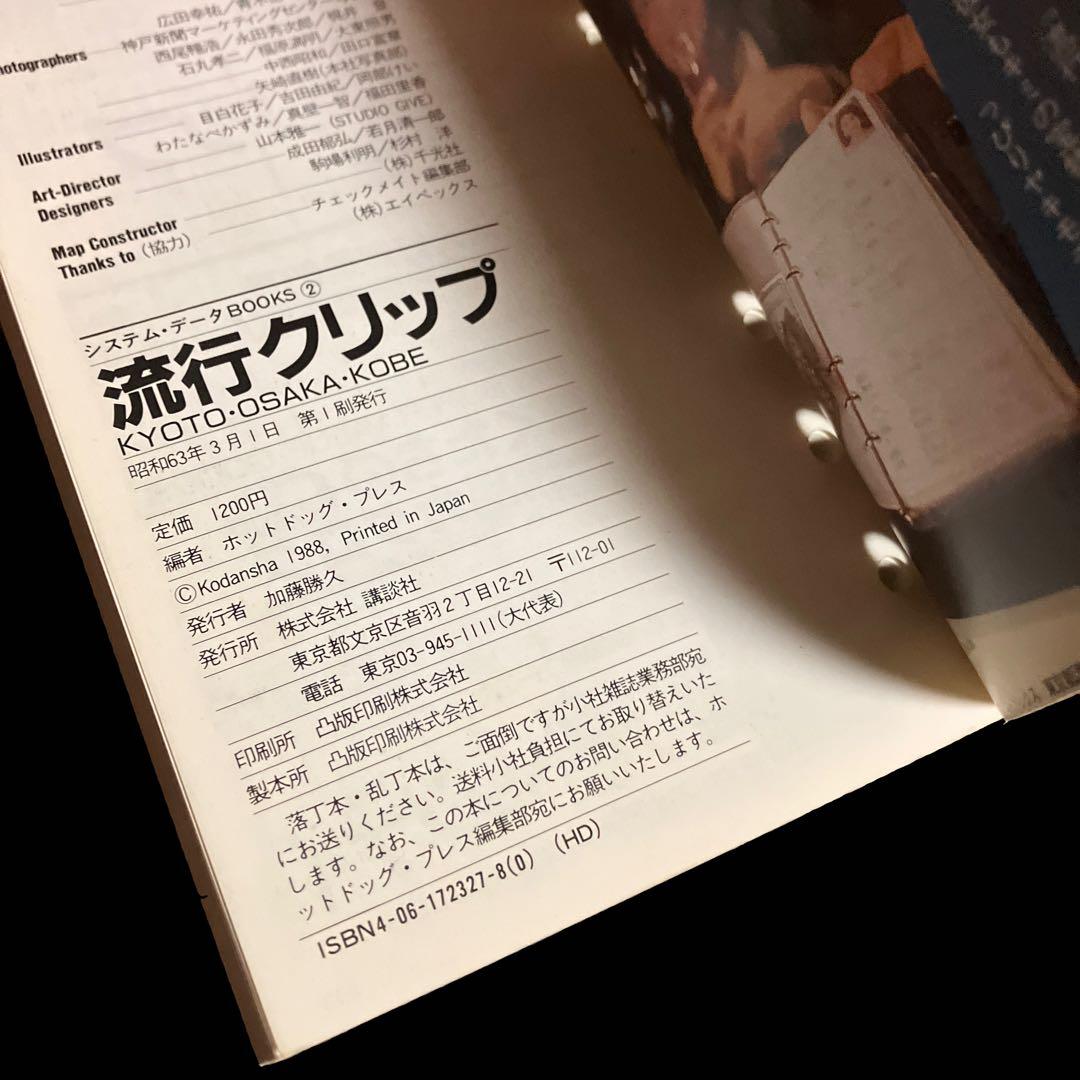 広田幸祐／青木
Photographers 神戸新聞マーケティングセンター
西尾暢浩／永田秀次郎／桃井
石丸孝二／福原満明／大東照男
中西昭和／田口富豪
矢崎直樹(本社写真部)
Illustrators 目白花子／吉田由紀／阿部けい
わたなべかずみ／真壁一智／福田里香
Art-Director 山本雅一(STUDIO GIVE)
Designers 成田郁弘／若月清一郎
駒場利明／杉村 洋
Map Constructor (株)千光社
Thanks to (協力) チェックメイト編集部
(株)エイペックス
システム・データBOOKS ②
流行クリップ
KYOTO・OSAKA・KOBE
昭和63年3月1日 第1刷発行
定価 1200円
編者 ホットドッグ・プレス
©Kodansha 1988, Printed in Japan
発行者 加藤勝久
発行所 株式会社 講談社
東京都文京区音羽2丁目12-21 〒112-01
電話 東京03-945-1111(大代表)
印刷所 凸版印刷株式会社
製本所 凸版印刷株式会社
落丁本・乱丁本は、ご面倒ですが小社雑誌業務部宛
にお送りください。送料小社負担にてお取り替えいた
します。なお、この本についてのお問い合わせは、ホ
ットドッグ・プレス編集部宛にお願いいたします。
ISBN4-06-172327-8(0) (HD)